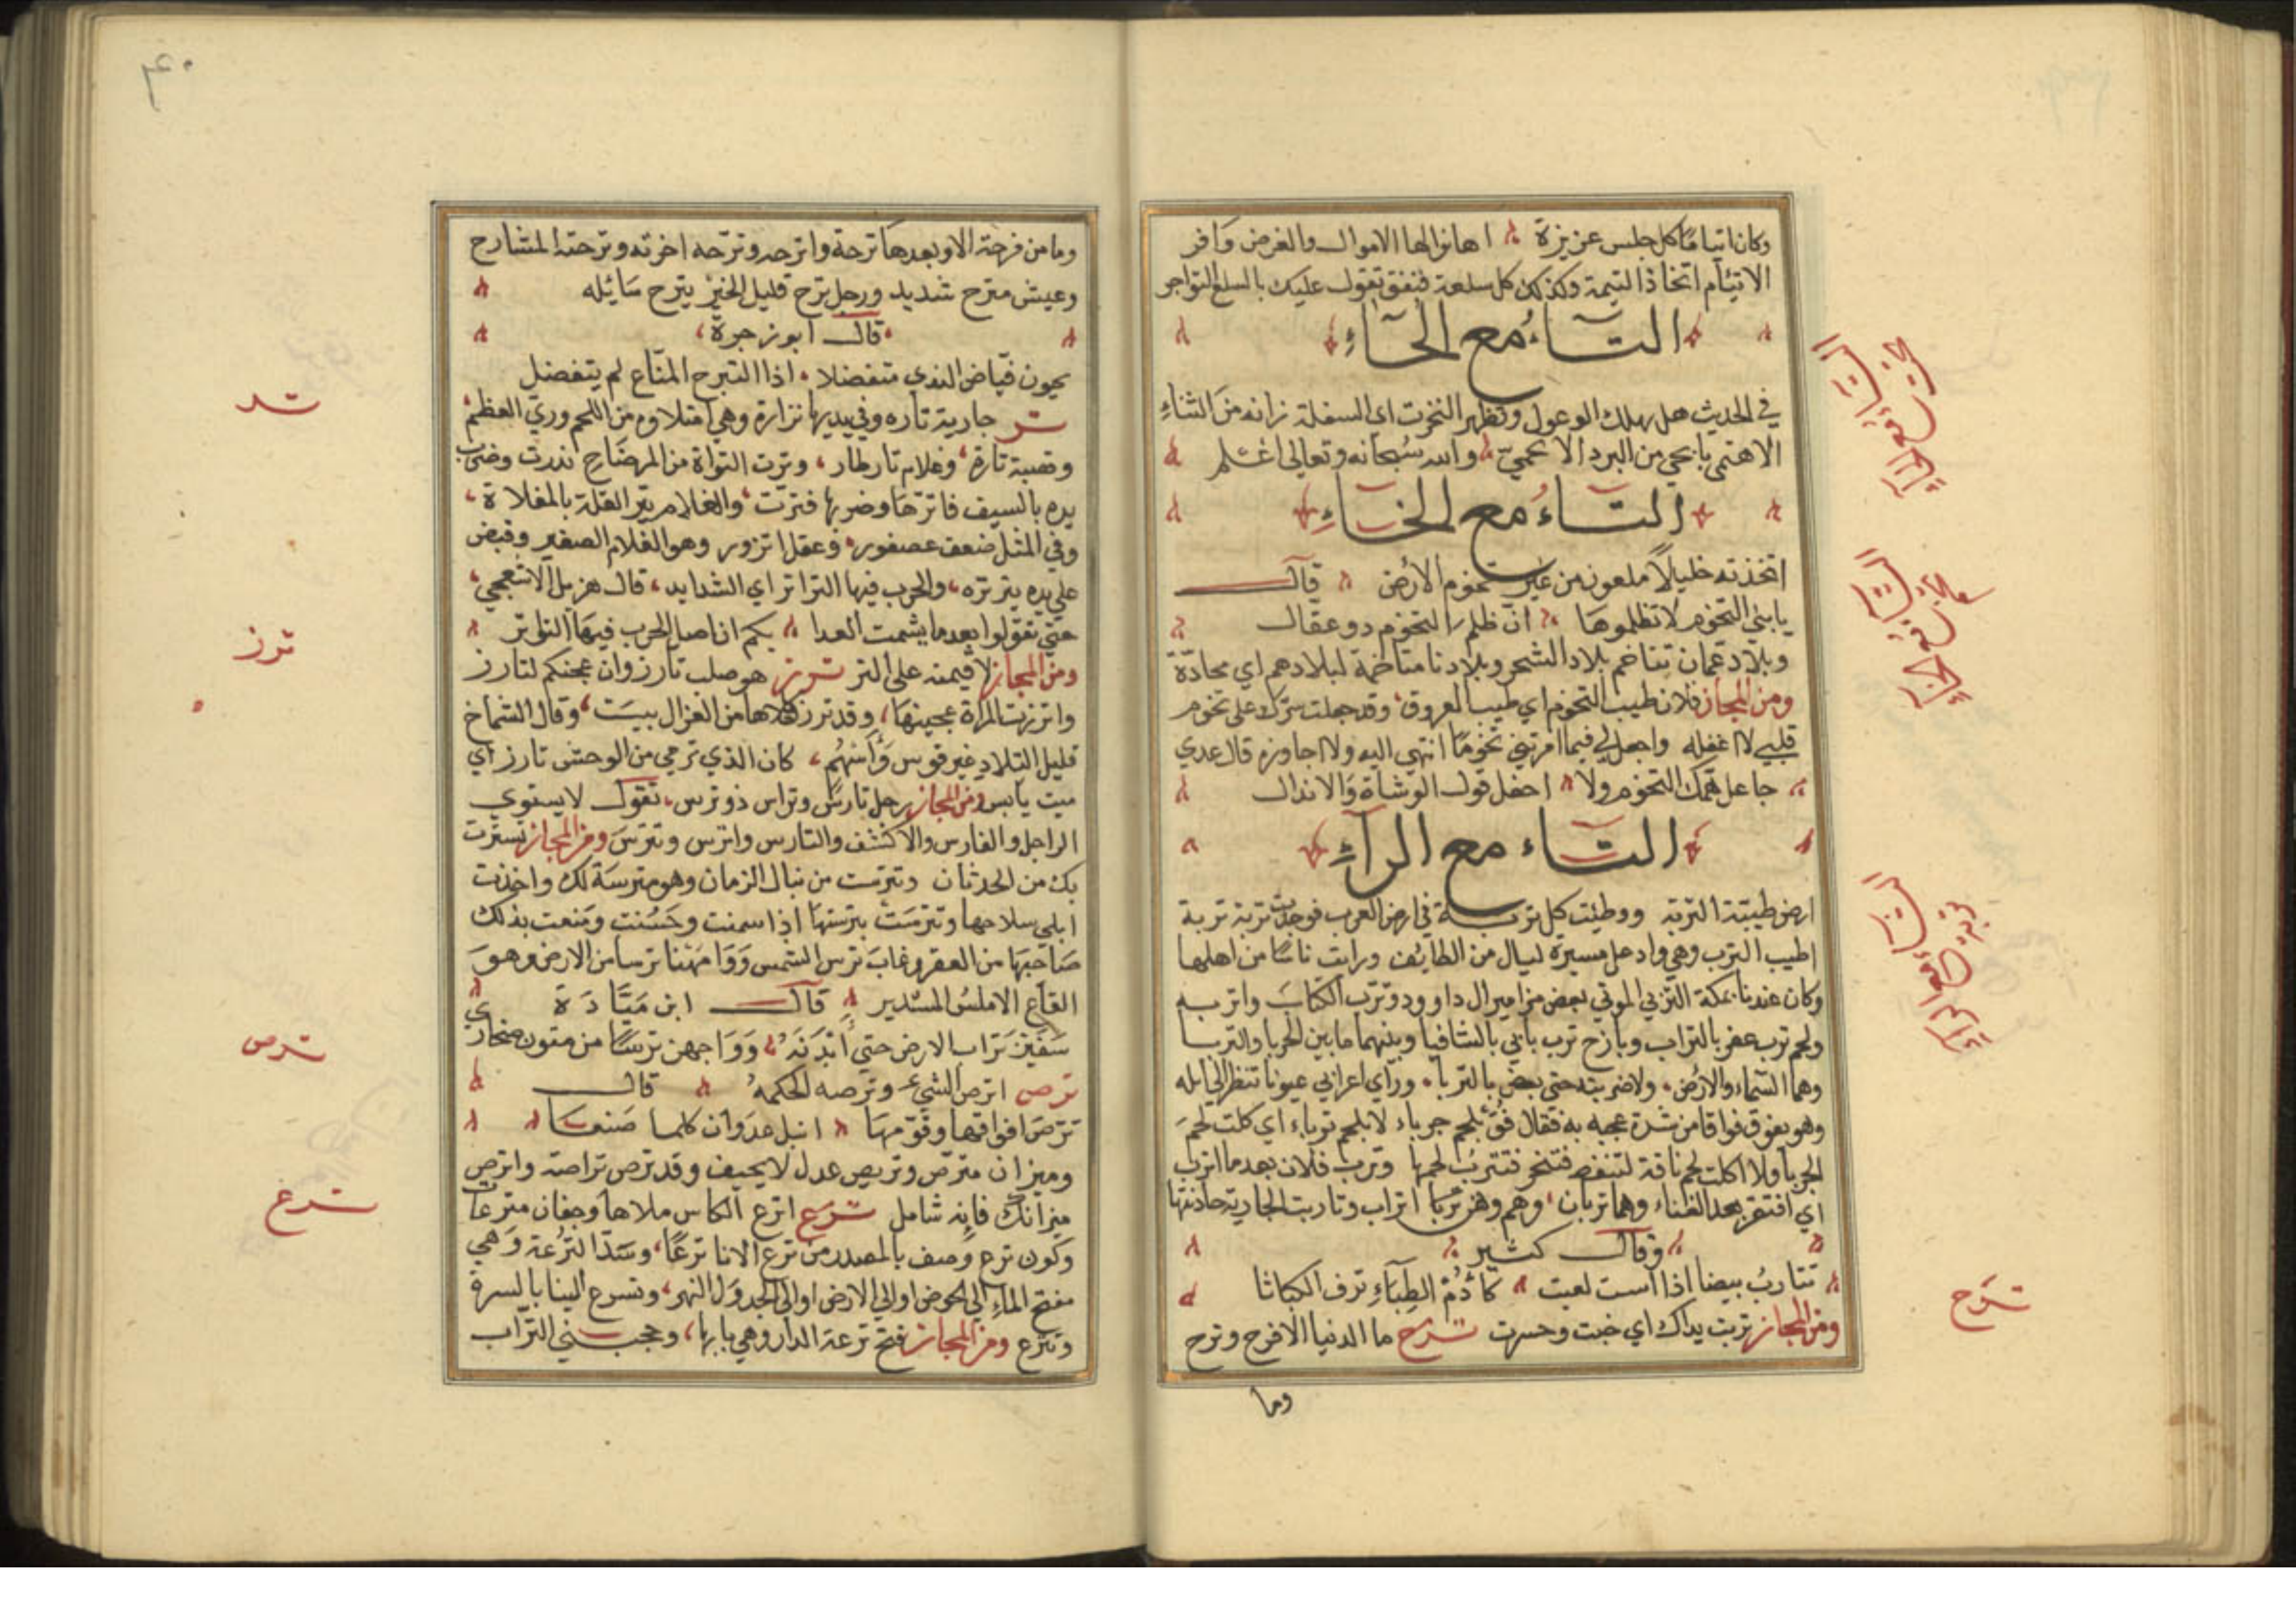 وكان اتيامًا كل جلس عزيزة اهانوا لها الاموال والغرض وافر
الاتيام اتخاذ التيمة وكذلك كل سلعة فنفق تقول عليك بالسلع التواجر
التاء مع الحاء
في الحديث هل يهلك الوعول وتظهر التحوت اي السفلة زانه من الثناء
الاهتمي ما يحي من البرد الاتحمي والله سبحانه وتعالى اعلم
التاء مع الخاء
اتخذته خليلا ملعون من غير تخوم الارض قال
يا بني التخوم لا تظلموها ان ظلم التخوم ذو عقال
وبلاد عمان تتاخم بلاد الشحر وبلادنا متاخمة لبلادهم اي محادّة
ومن المجاز فلان طيب التخوم اي طيب العروق وقد جعلت سرك على تخوم
قلبي لا اغفله واجعل لي فيما امرتني تخومًا انتهي اليه ولا اجاوزه قال عدي
جاعل همك التخوم ولا احفل قول الوشاة والاندال
التاء مع الراء
ارض طيبة التربة ووطئت كل تربة في ارض العرب فوجدت تربة تربة
اطيب الترب وهي واد على مسيرة ليال من الطائف ورايت ناسًا من اهلها
وكان عندنا بمكة التربي الموتي بعض مزامير ال داوود وترب الكتاب واتربه
ولحم ترب عفر بالتراب وبارح ترب ياتي بالسافيا وبينهما ما بين الجربا والتربا
وهما السماء والارض ولاضربنه حتى يعض بالتربا وراي اعرابي عيونا تنظر الى ابله
وهو يفوق فواقا من شدة عجبه به فقال فق بلحم جرباء لا بلحم ترباء اي كلت لحم
الجربا ولا اكلت لحم ناقة تسقط فتنحر فتترب لحمها وترب فلان بعد ما اترب
اي افتقر بعد الغناء وهما تربان وهم وهن تربا اتراب وتاربت الجارية حاذنتها
وقال كثير
تتارب بيضا اذا است لعبت كادم الظباء ترف الكباثا
ومن المجاز تربت يداك اي خبت وخسرت ترح ما الدنيا الا فرح وترح
وما
ترح
٤٠
وما من فرحة الا وبعدها ترحة واترحه وترحه اخرته وترحته المتنارح
وعيش مترح شديد ورجل ترح قليل الخير يترح سائله
قال ابو زجرة
يحيون فيّاض الندى متفضلا اذا الترح المنّاع لم يتفضل
تر جارية تاره وفي يديها تزارة وهي امتلاوه من اللحم وري العظم
وقصبة تارة وغلام تار طار وترت النواة من المرضاح ندرت وضرب
يده بالسيف فاترها وضربها فترت والغلام يتر القلة بالمقلاة
وفي المثل ضعف عصفور وعقل اترور وهو الغلام الصغير وقبض
على يده يترتره والحرب فيها التراتر اي الشدايد قال هزيل الاشعجي
حتى تقولوا بعد ما يشمت العدا بكم ان اصل الحرب فيها التواتر
ومن المجاز لاقيمنه على التر ترز هو صلب تارز وان عجنكم لتارز
واترزت المراة عجينها وقد ترز كلاها من الغزال يبست وقال الشماخ
قليل التلاد غير قوس واسهم كان الذي ترمي من الوحش تارز اي
ميت يابس ومن المجاز رجل تارس وتراس ذو ترس تقول لا يستوي
الراجل والفارس والاكشف والتارس واترس وتترس ومن المجاز تسترت
بك من الحدثان وتترست من نبال الزمان وهو مترسة لك واخذت
ابلي سلاحها وتترست بترستها اذا سمنت وحسنت ومنعت بذلك
صاحبها من العقر وغاب ترس الشمس وواجهنا ترسا من الارض وهو
القاع الاملس المستدير قال ابن ميادة
سفين تراب الارض حتى ابدنه وواجهن ترسًا من متون صحاري
ترص اترص الشيء وترصه احكمه قال
ترّص افواقها وقوّمها انبل عدوان كلها صنعا
وميزان مترص وتريص عدل لا يحيف وقد ترص تراصة واترص
ميزانك فانه شامل ترع اترع الكاس ملاها وجفان مترعات
وكون ترع وصف بالمصدر من ترع الانا ترعًا وسدّ الترعة وهي
مفتح الماء الى الحوض او الى الارض او الى الجدول النهر وتسرع الينا بالسرة
وتترع ومن المجاز فتح ترعة الدار وهي بابها وحجبني التراب
تر
ترز
ترص
ترع